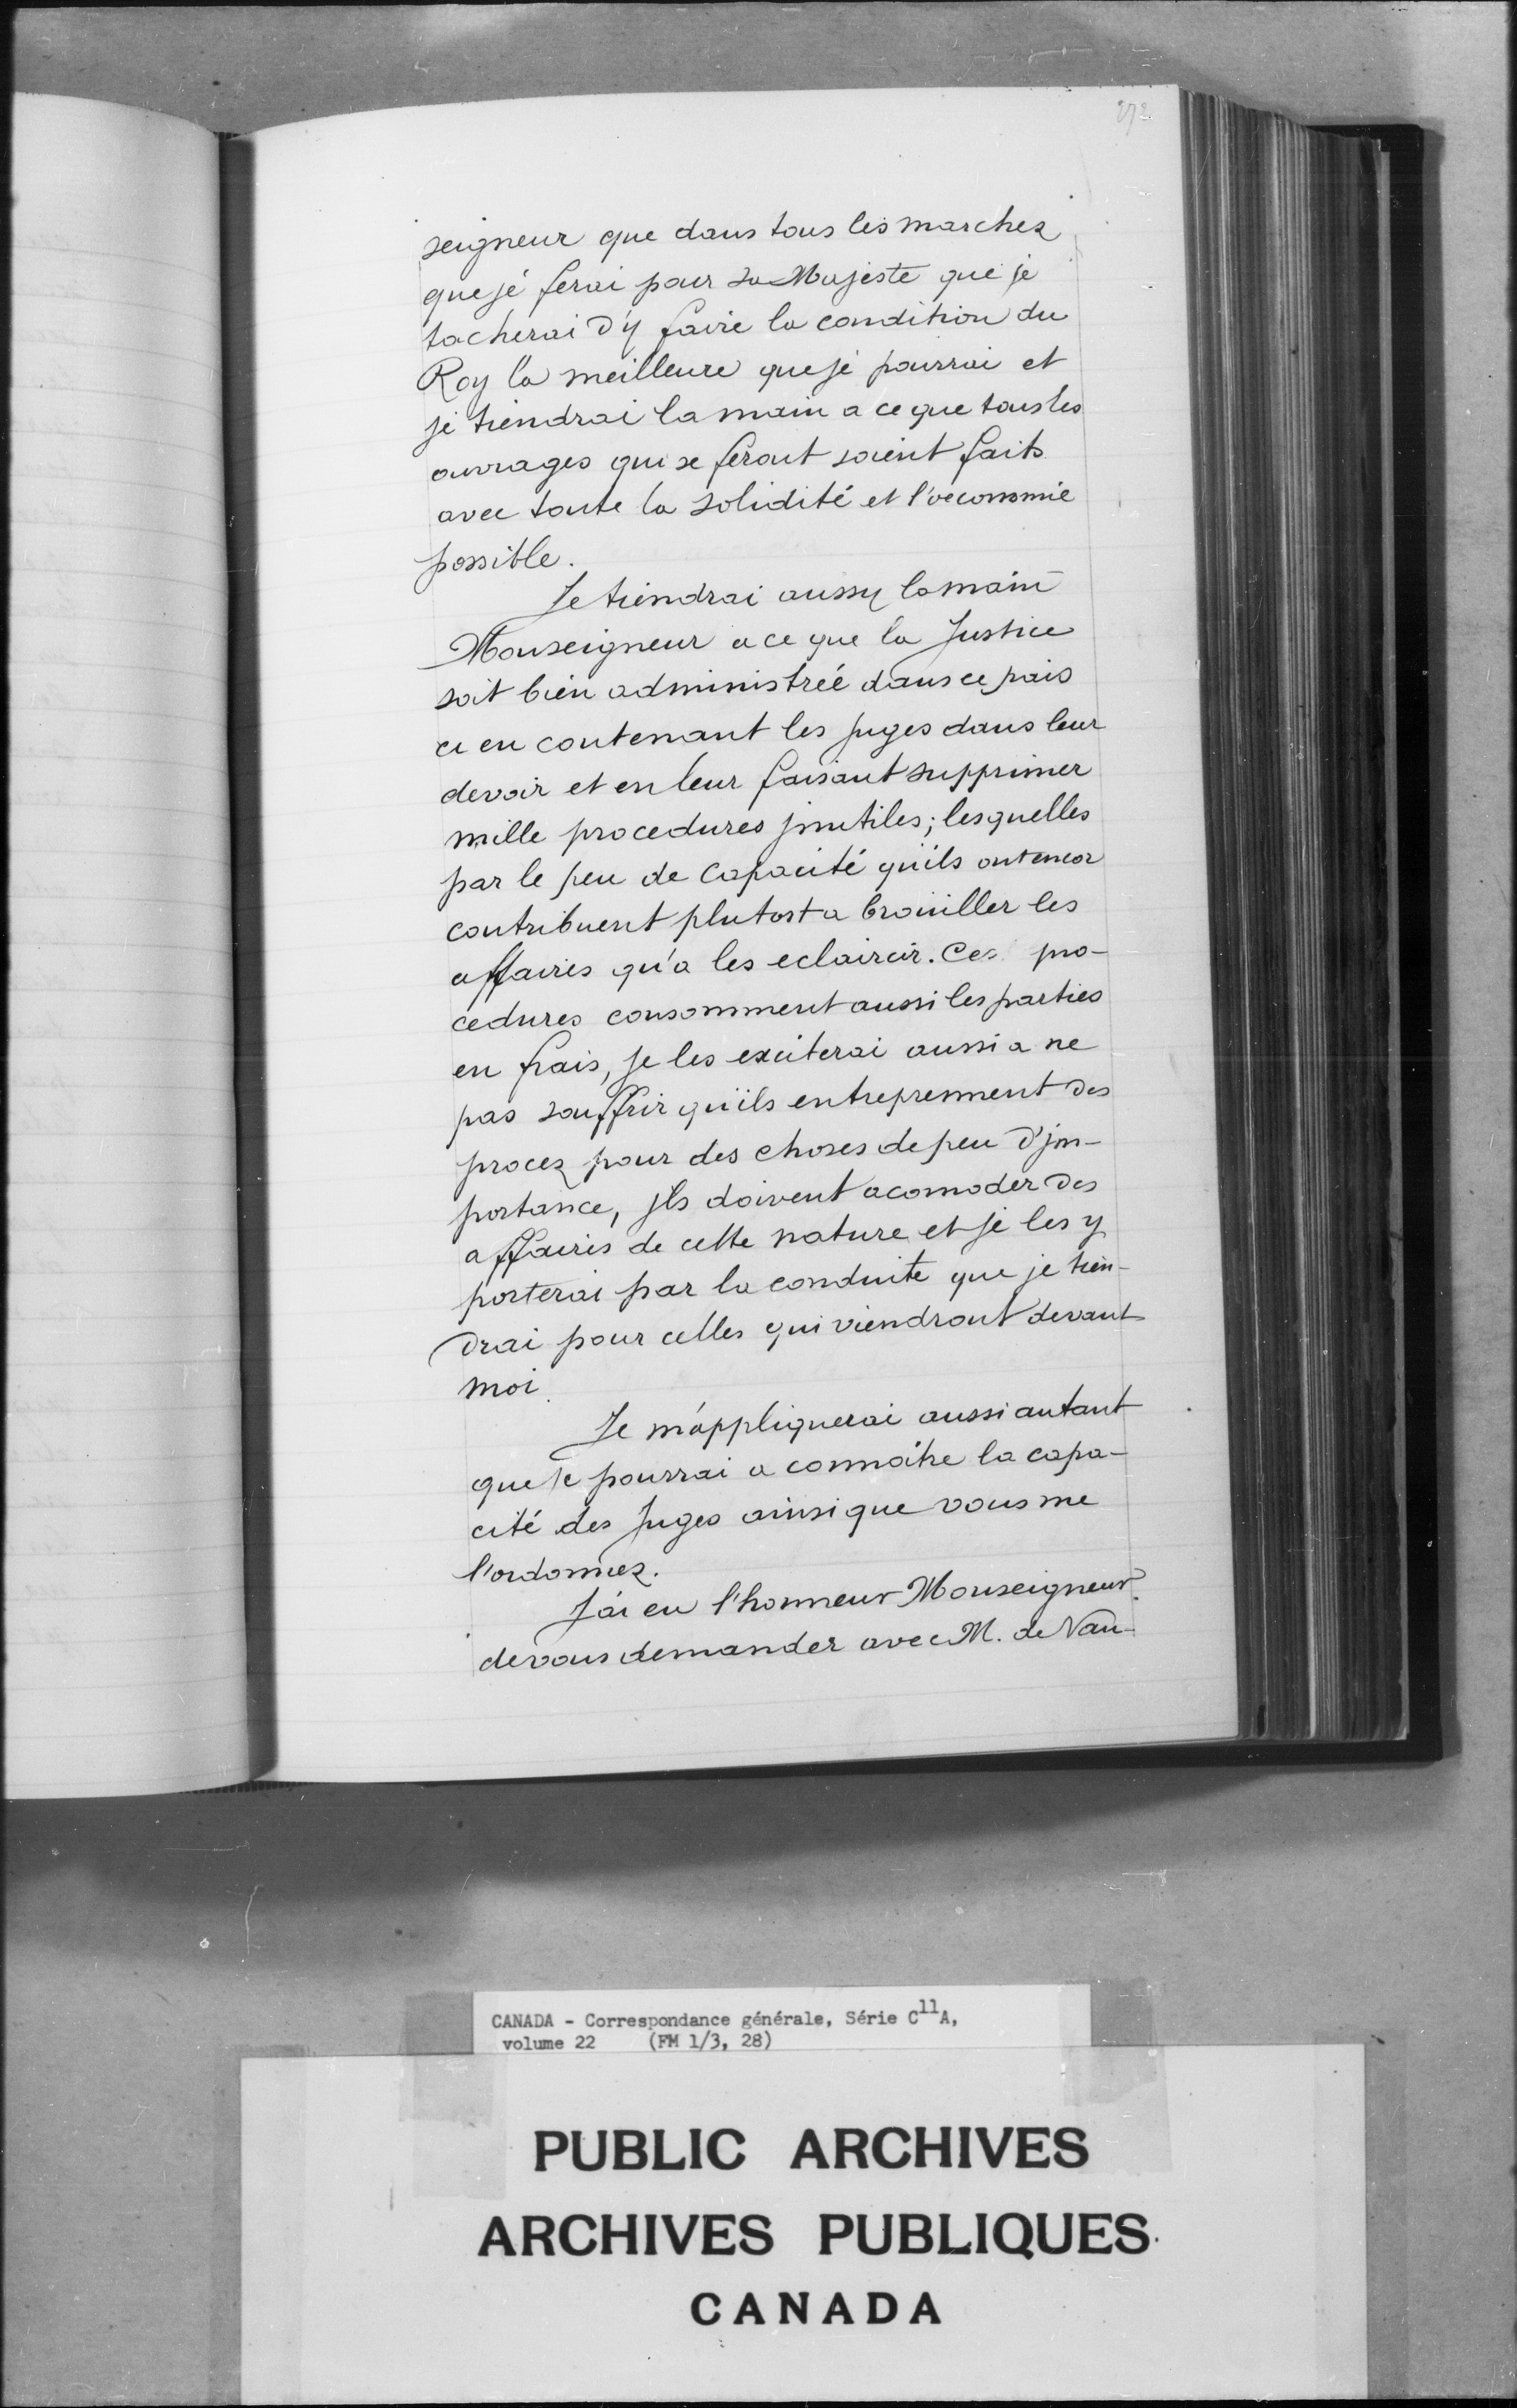 272
seigneur que dans tous les marchez
que je ferai pour sa Majesté que je
tacherai d'y faire la condition du
Roy la meilleure que je pourrai et
je tiendrai la main a ce que tous les
ouvrages qui se feront soient faits
avec toute la solidité et l'oeconomie
possible.
Je tiendrai aussy la main
Monseigneur a ce que la Justice
soit bien administrée dans ce pais
ci en contenant les juges dans leur
devoir et en leur faisant supprimer
mille procedures jnutiles; lesquelles
par le peu de capacité qu'ils ont encor
contribuent plutost a broüiller les
affaires qu'a les eclaircir. Ces pro-
cedures consomment aussi les parties
en frais, je les exciterai aussi a ne
pas souffrir qu'ils entreprennent des
procez pour des choses de peu d'jm-
portance, jls doivent acomoder des
affaires de cette nature et je les y
porterai par la conduite que je tien-
drai pour celles qui viendront devant
moi.
Je m'appliquerai aussi autant
que je pourrai a connoitre la capa-
cité des Juges ainsi que vous me
l'ordonnez.
J'ai eu l'honneur Monseigneur
de vous demander avec M. de Vau-
CANADA - Correspondance générale, Série C11A,
volume 22 (FM 1/3, 28)
PUBLIC ARCHIVES
ARCHIVES PUBLIQUES
CANADA